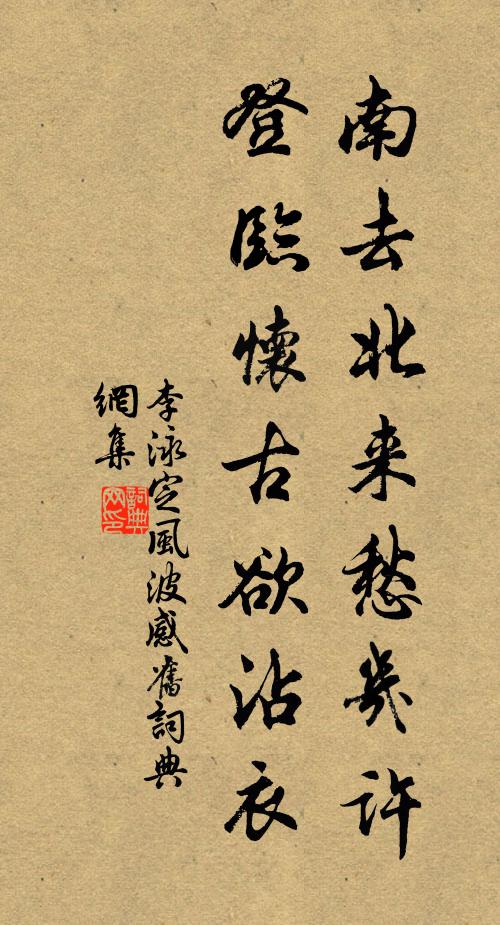 南去北来愁幾許
登臨懷古欲沾衣
李泳定風波感舊詞典
網集
詞典
网印